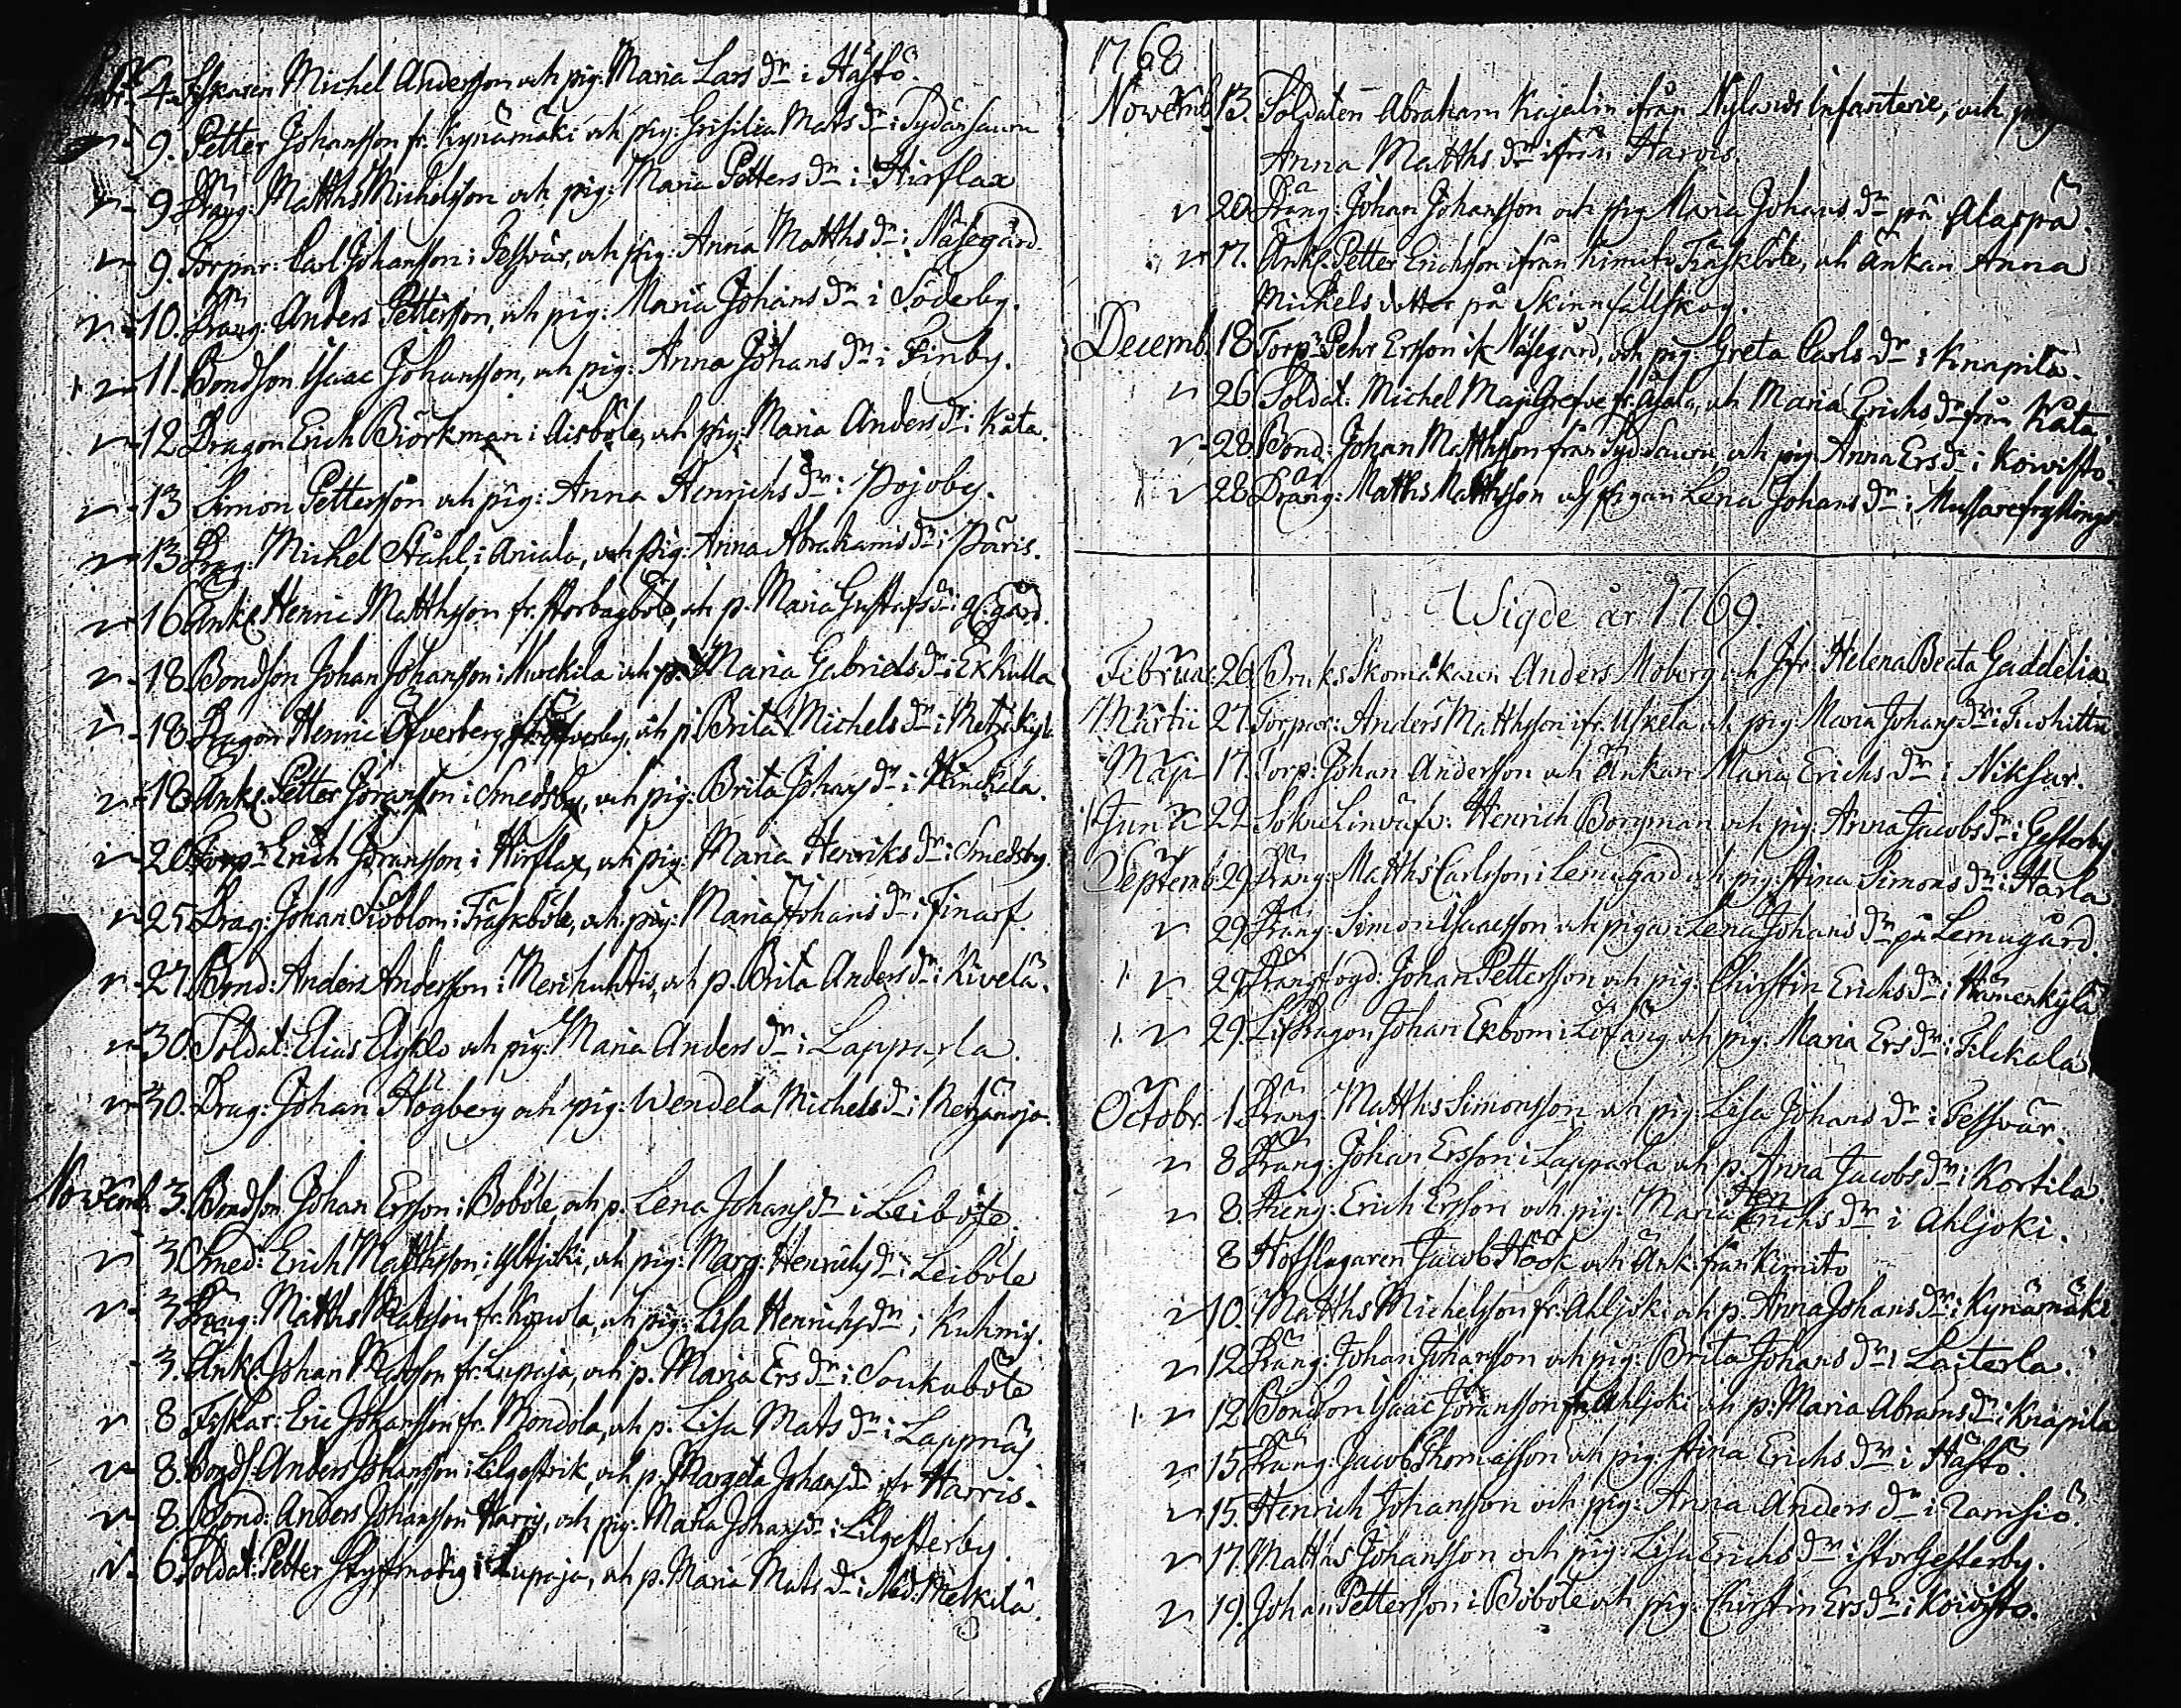 4. Fiskaren Michel Andersson och pig: Maria Lars dr i Håstö.
9. Petter Johansson fr. Kynämäki och pig: Grisilia Mats dr i
9. Dräng: Matths Michelsson och pig: Maria Petters dr i Hirflax
9. Torpar: Carl Johansson i Tessvär, och pig: Anna Matths dr i Näsegård
10. Dräng: Anders Pettersson, och pig: Maria Johans dr i Söderby.
11. Bondson Isaac Johansson, och pig: Anna Johans dr i Finby.
12 Dragon Erich Biörkman i Aisböle, och pig: Maria Anders dr i Kåta.
13 Simon Pettersson och pig: Anna Henrichs dr i Pojoby.
13 Drag: Michel Ståhl, i Aniala, och pig: Anna Abrahams dr i Päris.
16 Ankl. Henric Matthsson fr. Storbagböle, och p. Maria Gustafs dr i gård.
18. Bondson Johan Johansson i och p. Maria Gabriels dr i Ekkulla
18. Dragon Henric Öfverberg och p. Brita Michels dr i Metzkylä
18. Ankl. Petter Jöransson i Smedsby, och pig: Brita Johans dr i
20. Torpr Erich Jöransson i Hirflax, och pig: Maria Henriks dr i Smedsby.
25. Drag: Johan Siöblom i Träskböle, och pig: Maria Johans dr i Finarf.
27. Bond: Anders Andersson i Merihuhtis, och p. Brita Anders dr i Kivelä.
30. Soldat: Elias och pig: Maria Anders dr i Lapparla.
30. Drag: Johan Högberg och pig: Wendela Michels dr i Metzänoja.
Novemb. 3. Bondson Johan Ersson i Boböle och p. Lena Johans dr i Leiböle.
3 Smed: Erich Matthsson i och pig: Marg: Henrichs dr i Leiböle
3 Dräng: Matths Matsson fr. och pig: Lisa Henrichs dr i
3. Ankl. Johan Matsson fr. Lupaja, och p. Maria Ers dr i Soukaböle
8. Fiskar: Eric Johansson fr. Mondola, och p. Lisa Mats dr i Lappnäs
8. Bonds. Anders Johansson i och p. Margeta Johans dr fr Harvis.
8. Bond: Anders Johansson i Harvis, och pig: Maria Johans dr i Lilgesterby.
6. Soldat: Petter Styfmodig i Lupaja, och p. Maria Mats dr i Ned. Melkila.
1768
Novemb. 13. Soldaten Abraham Kajalin ifrån Nylands Infanterie, och
Anna Matths dr ifrån Harvis.
20. Dräng: Johan Johansson och pig Maria Johans dr på Alaspä.
17. Ankl. Petter Erichsson ifrån Kimito Träskböle, och Änkan Anna
Mickels dotter på Skinnfällskog.
Decemb. 18. Torpr Pehr Ersson Näsegård, och pig: Greta Carls dr i Knapila.
26. Soldat: Michel fr. och Maria Erichs dr från Kåta.
28. Bond: Johan Matthsson från och pig: Anna Ers dr i Koivisto.
28. Dräng: Matths Matthsson och pigan Lena Johans dr i
Wigde år 1769.
Februar. 26. Bruks Skomakaren Anders Moberg och Jfr. Helena Beata Gaddelia
Martii 27. Torpar: Anders Matthsson ifr. Uskela och pig Maria Johans dr i
Maji 17. Torp: Johan Andersson och Änkan Maria Erichs dr i Niksar.
Junii 22. Sokne Linväfv: Henrich Borgman och pig: Anna Jacobs dr i Gesterby.
Septemb. 29. Dräng: Matths Carlsson i Lemugård och pig: Stina Simons dr i Harla
29. Dräng: Simon Isaacsson och pigan Lena Johans dr på Lemugård.
29. Drängfogd: Johan Pettersson och pig: Christin Erichs dr i Hämenkylä
29. Lif Dragon Johan Ekbom i Löfäng och pig: Maria Ers dr i
Octobr. 1. Dräng: Matths Simonsson och pig: Lisa Johans dr i Tessvär.
8 Dräng: Johan Ersson i Lapparla och p. Anna Jacobs dr i Kortila.
8. Dräng: Erich Ersson och pig: Maria Erichs dr i Ahljoki.
Hen
8 Hofslagaren Jacob Höök och Änk: från Kimito
10. Matths Michelsson fr. Ahljoki och p. Anna Johans dr i Kynämäki
12. Dräng: Johan Johansson och pig: Brita Johans dr i Laiterla.
12. Bondson Isaac Jöransson fr. Ahljoki och p: Maria Abrams dr i Knapila
15. Dräng: Jacob Thomasson och pig: Stina Erichs dr i Håstö.
15. Henrich Johansson och pig: Anna Anders dr i Ramsiö.
17. Matths Johansson och pig: Lisa Erichs dr i Storgesterby.
19. Johan Pettersson i Boböle och pig: Christin Ers dr i Koivisto.